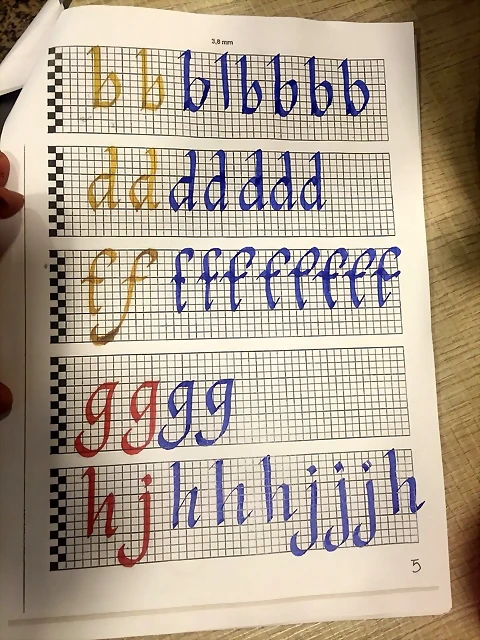 3,8 mm
b b b l b b b b
d d d d d d d
f f f f f f f f f f
g g g g
h j h h h j j j h
5